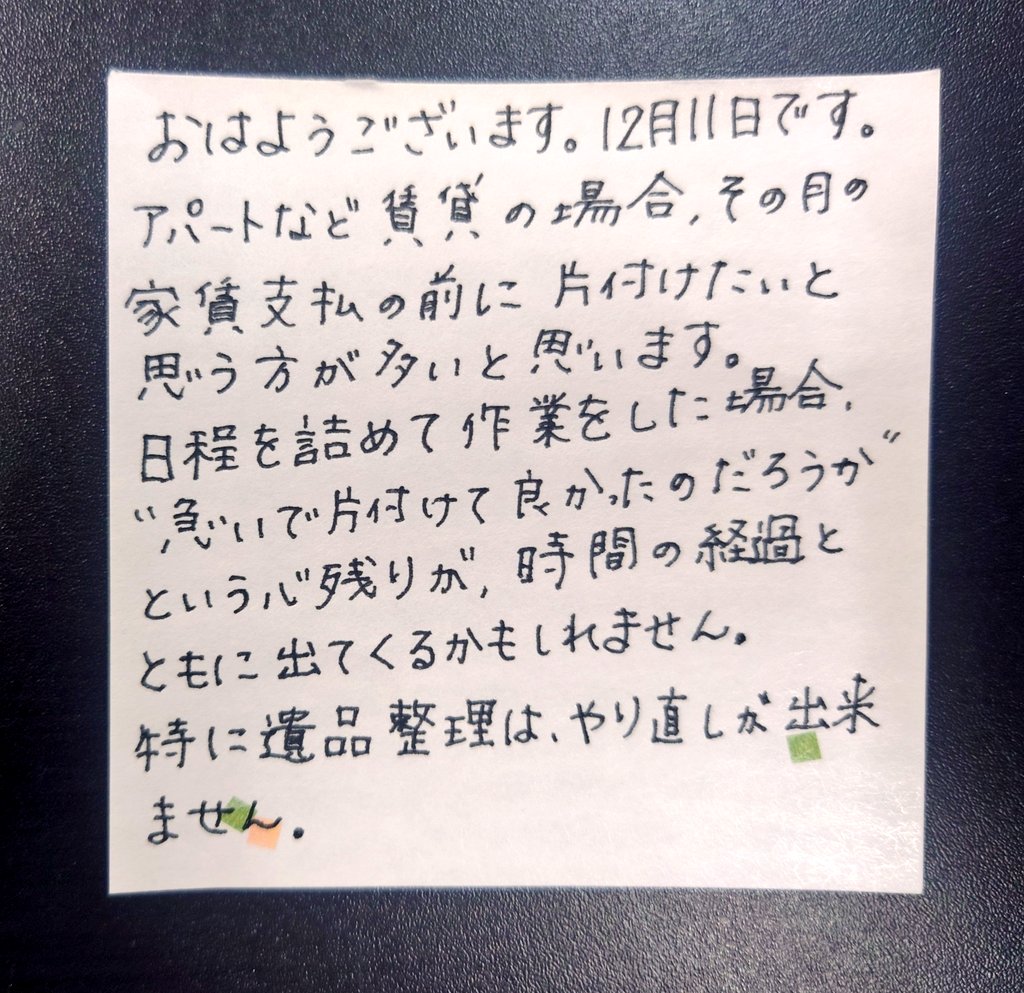 おはようございます。12月11日です。
アパートなど賃貸の場合、その月の
家賃支払の前に片付けたいと
思う方が多いと思います。
日程を詰めて作業をした場合、
“急いで片付けて良かったのだろうか”
という心残りが、時間の経過と
ともに出てくるかもしれません。
特に遺品整理は、やり直しが出来
ません。